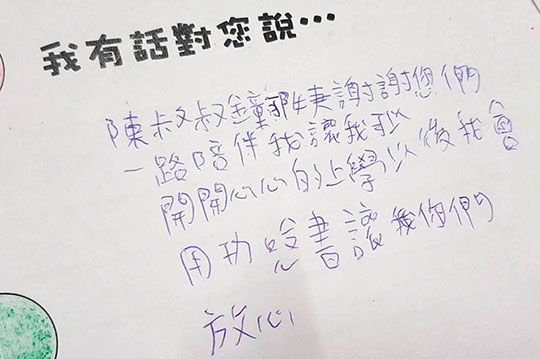 我有話對您說…
陳叔叔鐘阿姨謝謝您們
一路陪伴我讓我可以
開開心心的上學以後我會
用功念書讓你們
放心